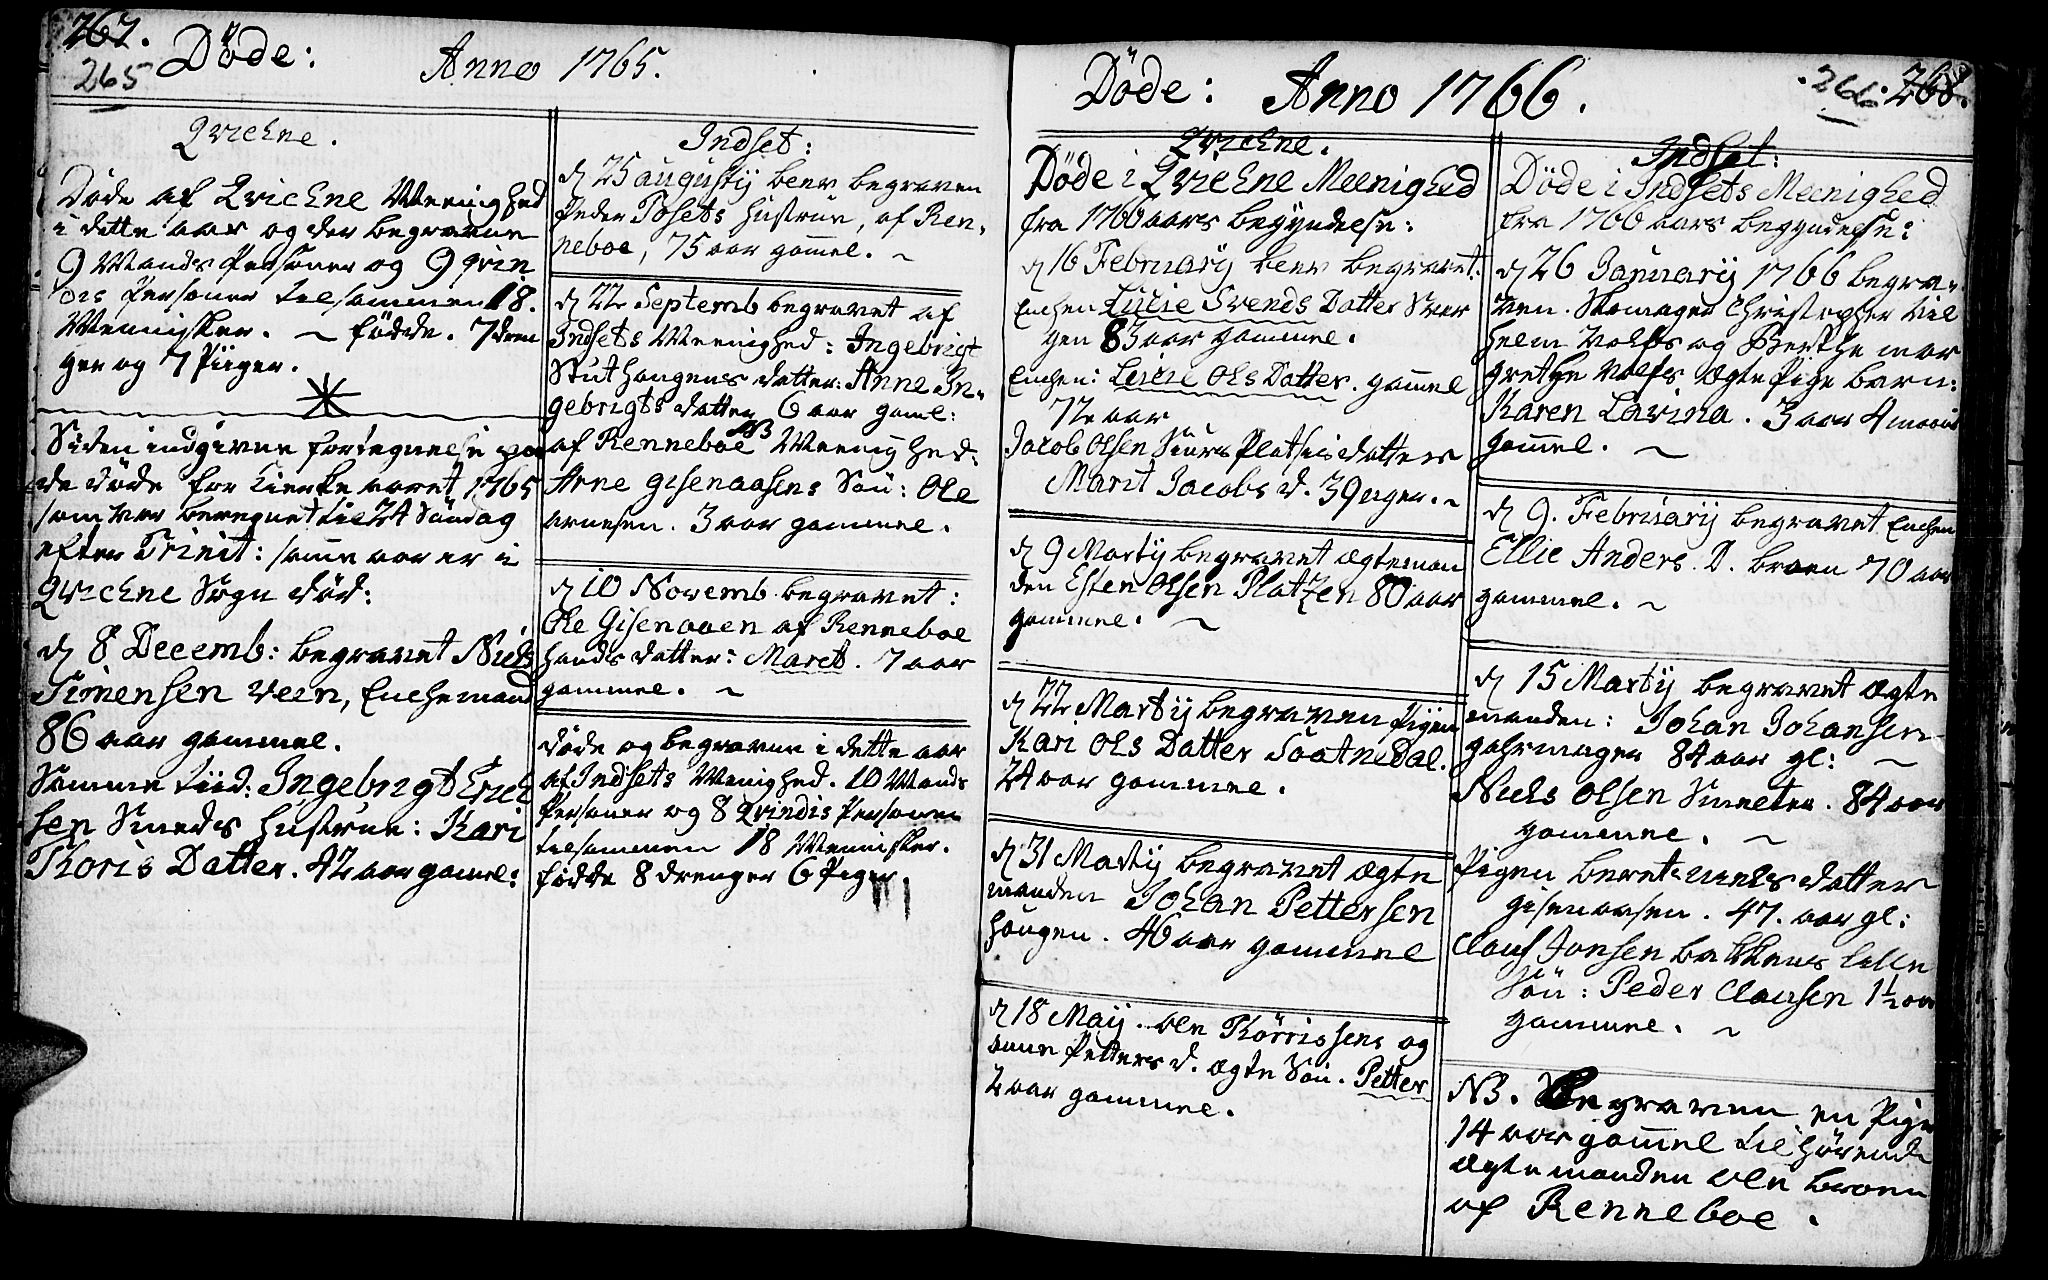 267.
265
Döde: Anno 1765.
Qvichne.
Döde af Qvichne Meenighed
i dette aar og der begravne
9 Mands Personer og 9 qvin
dis Personer tilsammen 18.
Mennisker. ~ födde. 7 dren
ger og 7 Piiger.
Siden indgivne fortegnelse paa
de döde for Kierke aaret 1765
som var beregnet til 24 Söndag
efter Trinit: samme aar er i
Qvichne Sogn död:
d 8 Decemb: begravet Niels
Simensen Veen, Enchemand
86 aar gammel.
Samme tiid: Ingebrigt Erich
sen Smeds Hustrue: Kari
Thoris Datter. 42 aar gamel:
Indset:
d 25 augustij blev begraven
Peder Tosets Hustrue, af Ren,
neboe, 75 aar gamel. ~
d 22 Septemb begravet af
Indsets Meenighed: Ingebrigt
Stuthaugens datter: Anne In,
gebrigts datter 6 aar gaml:
NB
af Renneboe Meenighed:
Arne Gisenaasens Sön: Ole
Arnesen. 3 aar gammel.
d 10 Novemb begravet:
Ole Gisenaaen af Renneboe
hands datter: Maret. 7 aar
gammel. ~
döde og begravne i dette aar
af Indsets Menighed. 10 Mands
Personer og 8 Qvindis Personer
tilsammen 18 Mennisker.
födde 8 drenger 6 Piger.
Döde: Anno 1766.
266 268.
Qvichne.
Döde i Qvichne Meenighed
fra 1766 aars begyndelse:
d 16 February blev begravet:
Enchen Lucie Svends Datter Svor
gen 83 aar gammel.
Enchen: Lucie Ols Datter. gamel
72 aar
Jacob Olsen Siurs Platsis datter
Marit Jacobs d. 39 uger. ~
d 9 Martij begravet ægteman
den Esten Olsen Platzen 80 aar
gammel. ~
d 22 Martij begraven Pigen
Kari Ols Datter Saatnedal.
24 aar gammel.
d 31 Martij begravet ægte
manden Johan Pettersen
Haugen. 46 aar gammel
d 18 Maij. Ole Thörrissens og
Petters d. ægte Sön. Petter
2 aar gammel.
Indset:
Döde i Indsets Meenighed
fra 1766 aars begyndelse:
d 26 January 1766 begra,
ven. Skomager Christopher Vil
helm Volfs og Berthe mar
grethe Volfs ægte Pige barn:
Karen Lavina. 3 aar 4 
gamel. ~
d 9. February begravet Enchen
Ellie Anders. D. braen 70 aar
gammel. ~
d 15 Martij begravet ægte
manden: Johan Johansen
84 aar gl: ~
Niels Olsen Smelter. 84 aar
gammel. ~
Pigen beret niels datter
gisenaasen. 47. aar gl:
Clauf Jonsen bakkens lille
Sön: Peder Clausen 1½ aar
gammel. ~
NB. Begraven en Pige
14 aar gammel tilhörende
ægtemanden Ole broen
af Renneboe.